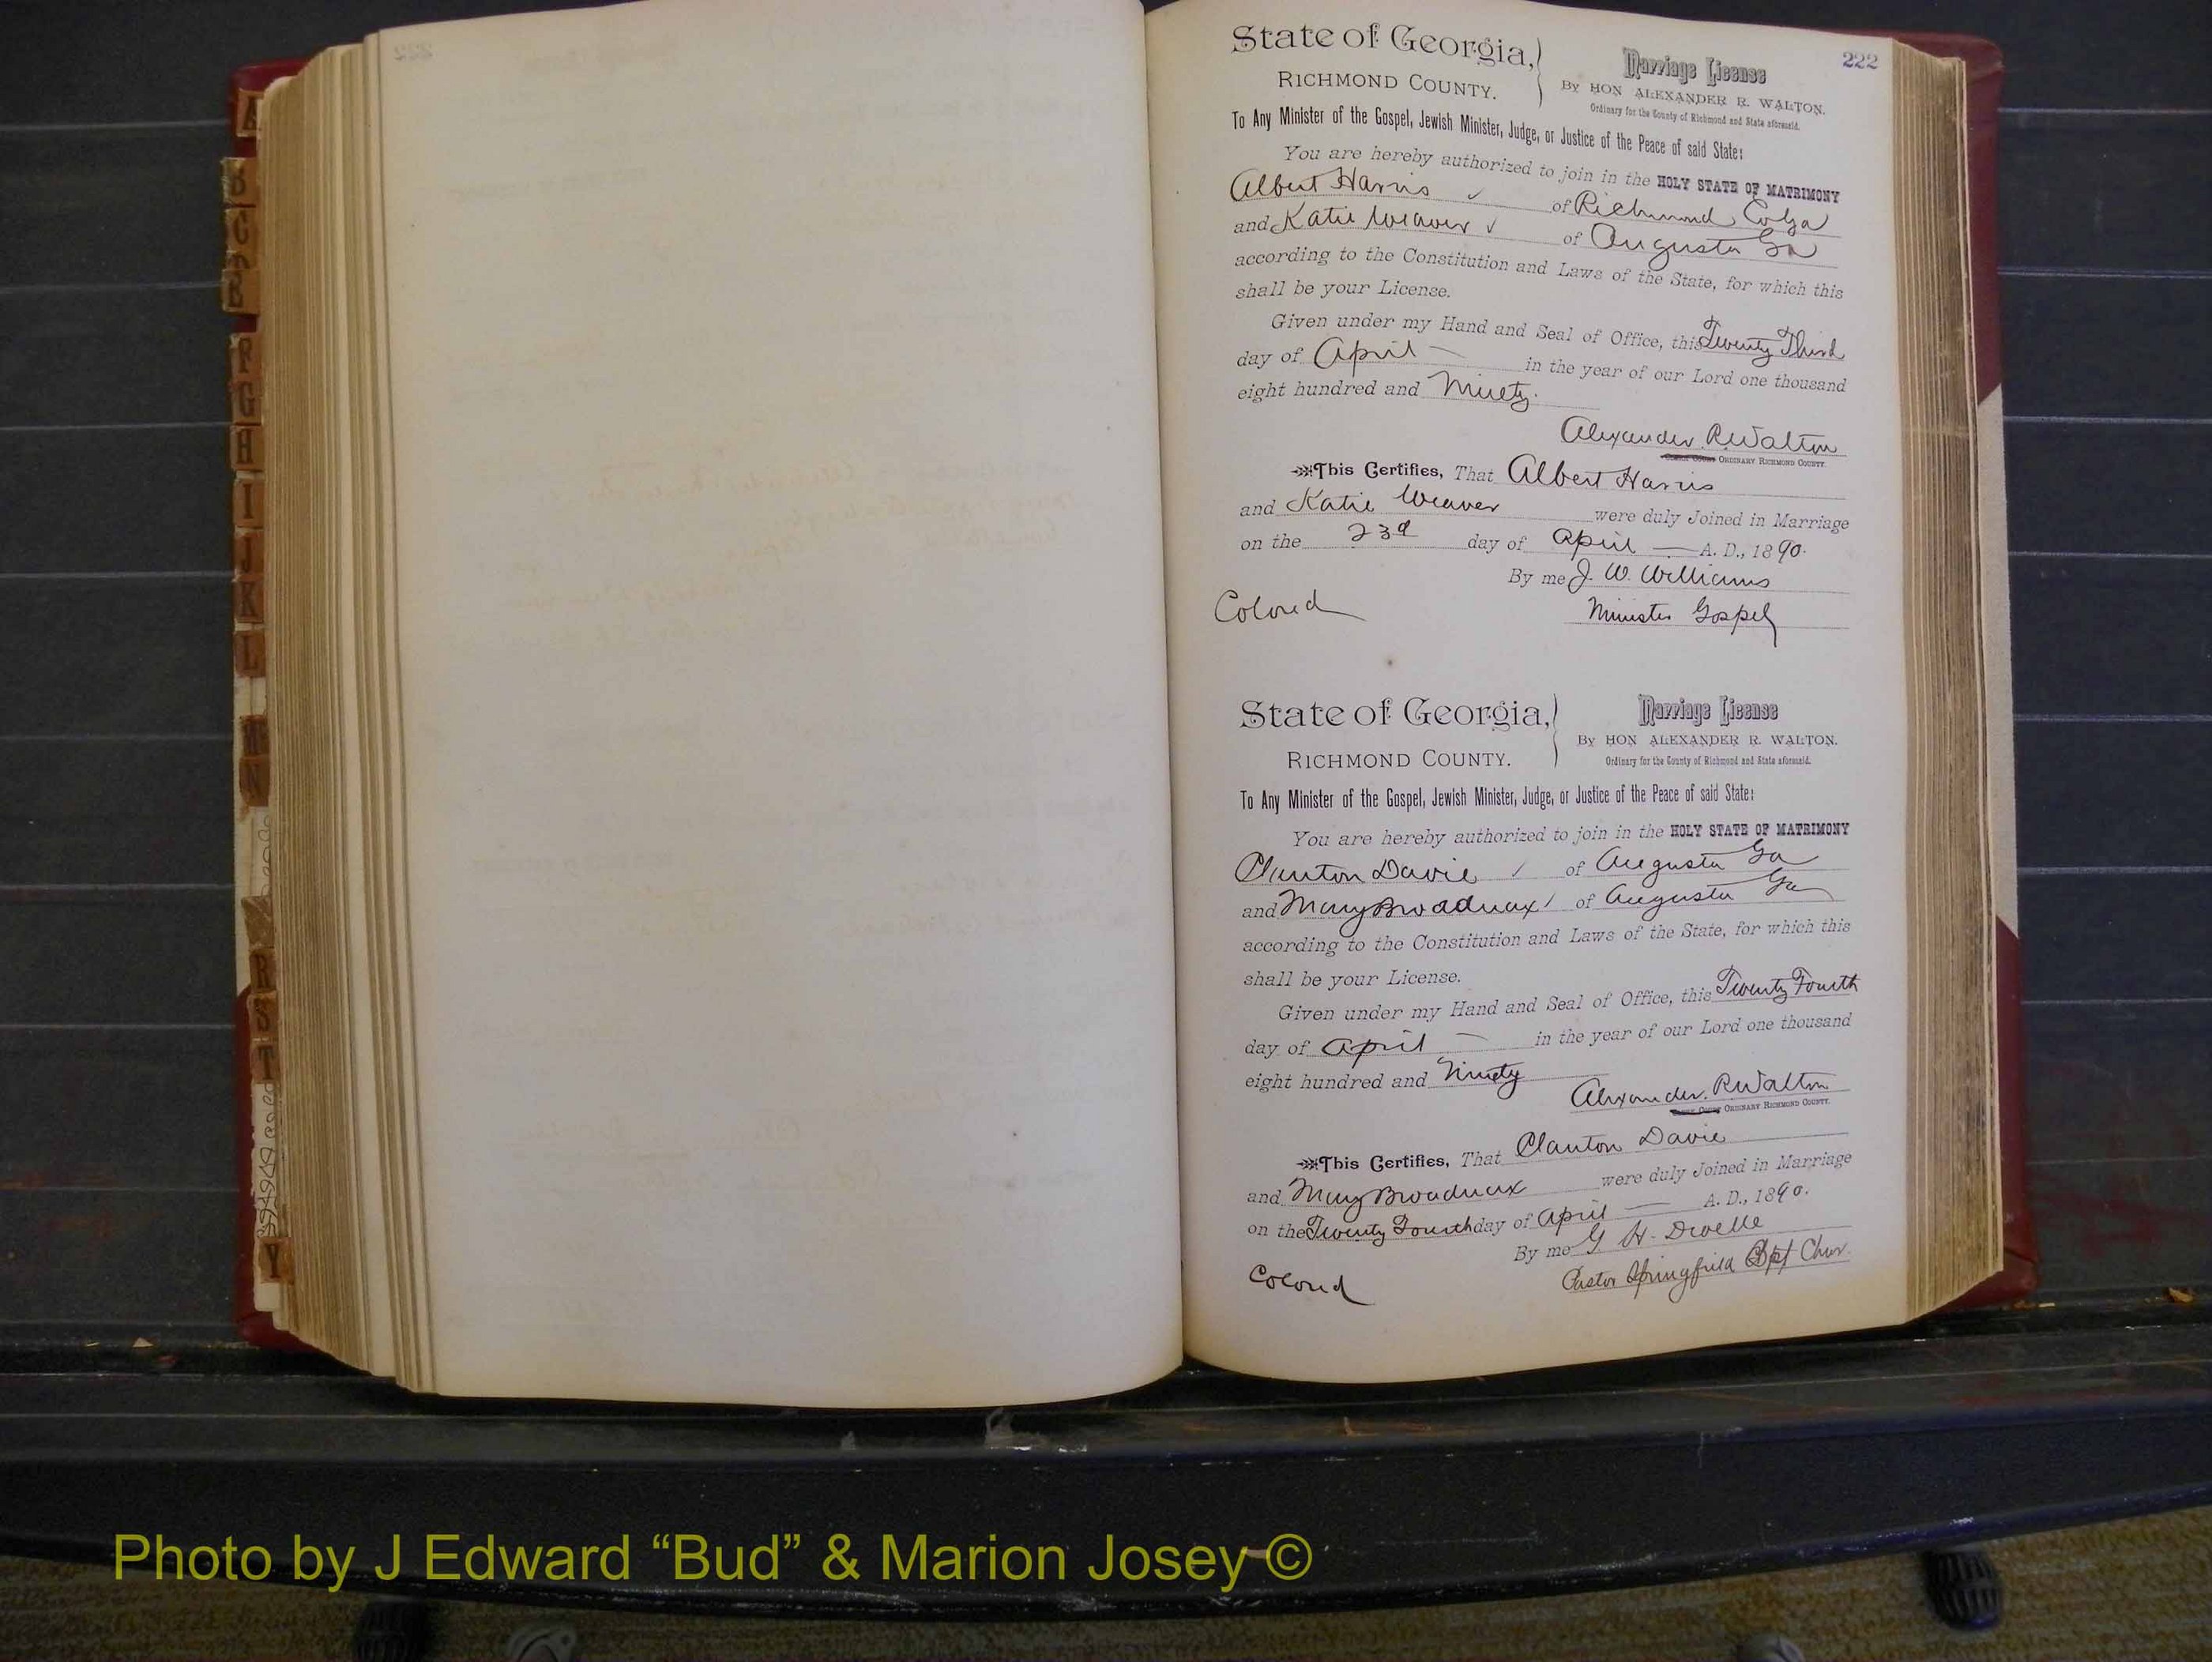 222
State of Georgia,
RICHMOND COUNTY.
Marriage License
By HON ALEXANDER R. WALTON.
Ordinary for the County of Richmond and State aforesaid.
To Any Minister of the Gospel, Jewish Minister, Judge, or Justice of the Peace of said State:
You are hereby authorized to join in the HOLY STATE OF MATRIMONY
Albert Harris of Richmond Co Ga
and Katie Weaver of Augusta Ga
according to the Constitution and Laws of the State, for which this
shall be your License.
Given under my Hand and Seal of Office, this Twenty Third
day of April in the year of our Lord one thousand
eight hundred and Ninety.
Alexander R Walton
ORDINARY RICHMOND COUNTY.
This Certifies, That Albert Harris
and Katie Weaver were duly Joined in Marriage
on the 23d day of April A. D., 1890.
By me J. W. Williams
Colored Minister Gospel
State of Georgia,
RICHMOND COUNTY.
Marriage License
By HON ALEXANDER R. WALTON.
Ordinary for the County of Richmond and State aforesaid.
To Any Minister of the Gospel, Jewish Minister, Judge, or Justice of the Peace of said State:
You are hereby authorized to join in the HOLY STATE OF MATRIMONY
Clanton Davie of Augusta Ga
and Mary Broadnax of Augusta Ga
according to the Constitution and Laws of the State, for which this
shall be your License.
Given under my Hand and Seal of Office, this Twenty Fourth
day of April in the year of our Lord one thousand
eight hundred and Ninety
Alexander R Walton
ORDINARY RICHMOND COUNTY.
This Certifies, That Clanton Davie
and Mary Broadnax were duly Joined in Marriage
on the Twenty Fourth day of April A. D., 1890.
By me G H. Dwelle
Colored Pastor Springfield Bpt Chur.
A
B
C
D
E
F
G
H
I
J
K
L
M
N
R
S
T
Y
Photo by J Edward “Bud” & Marion Josey ©